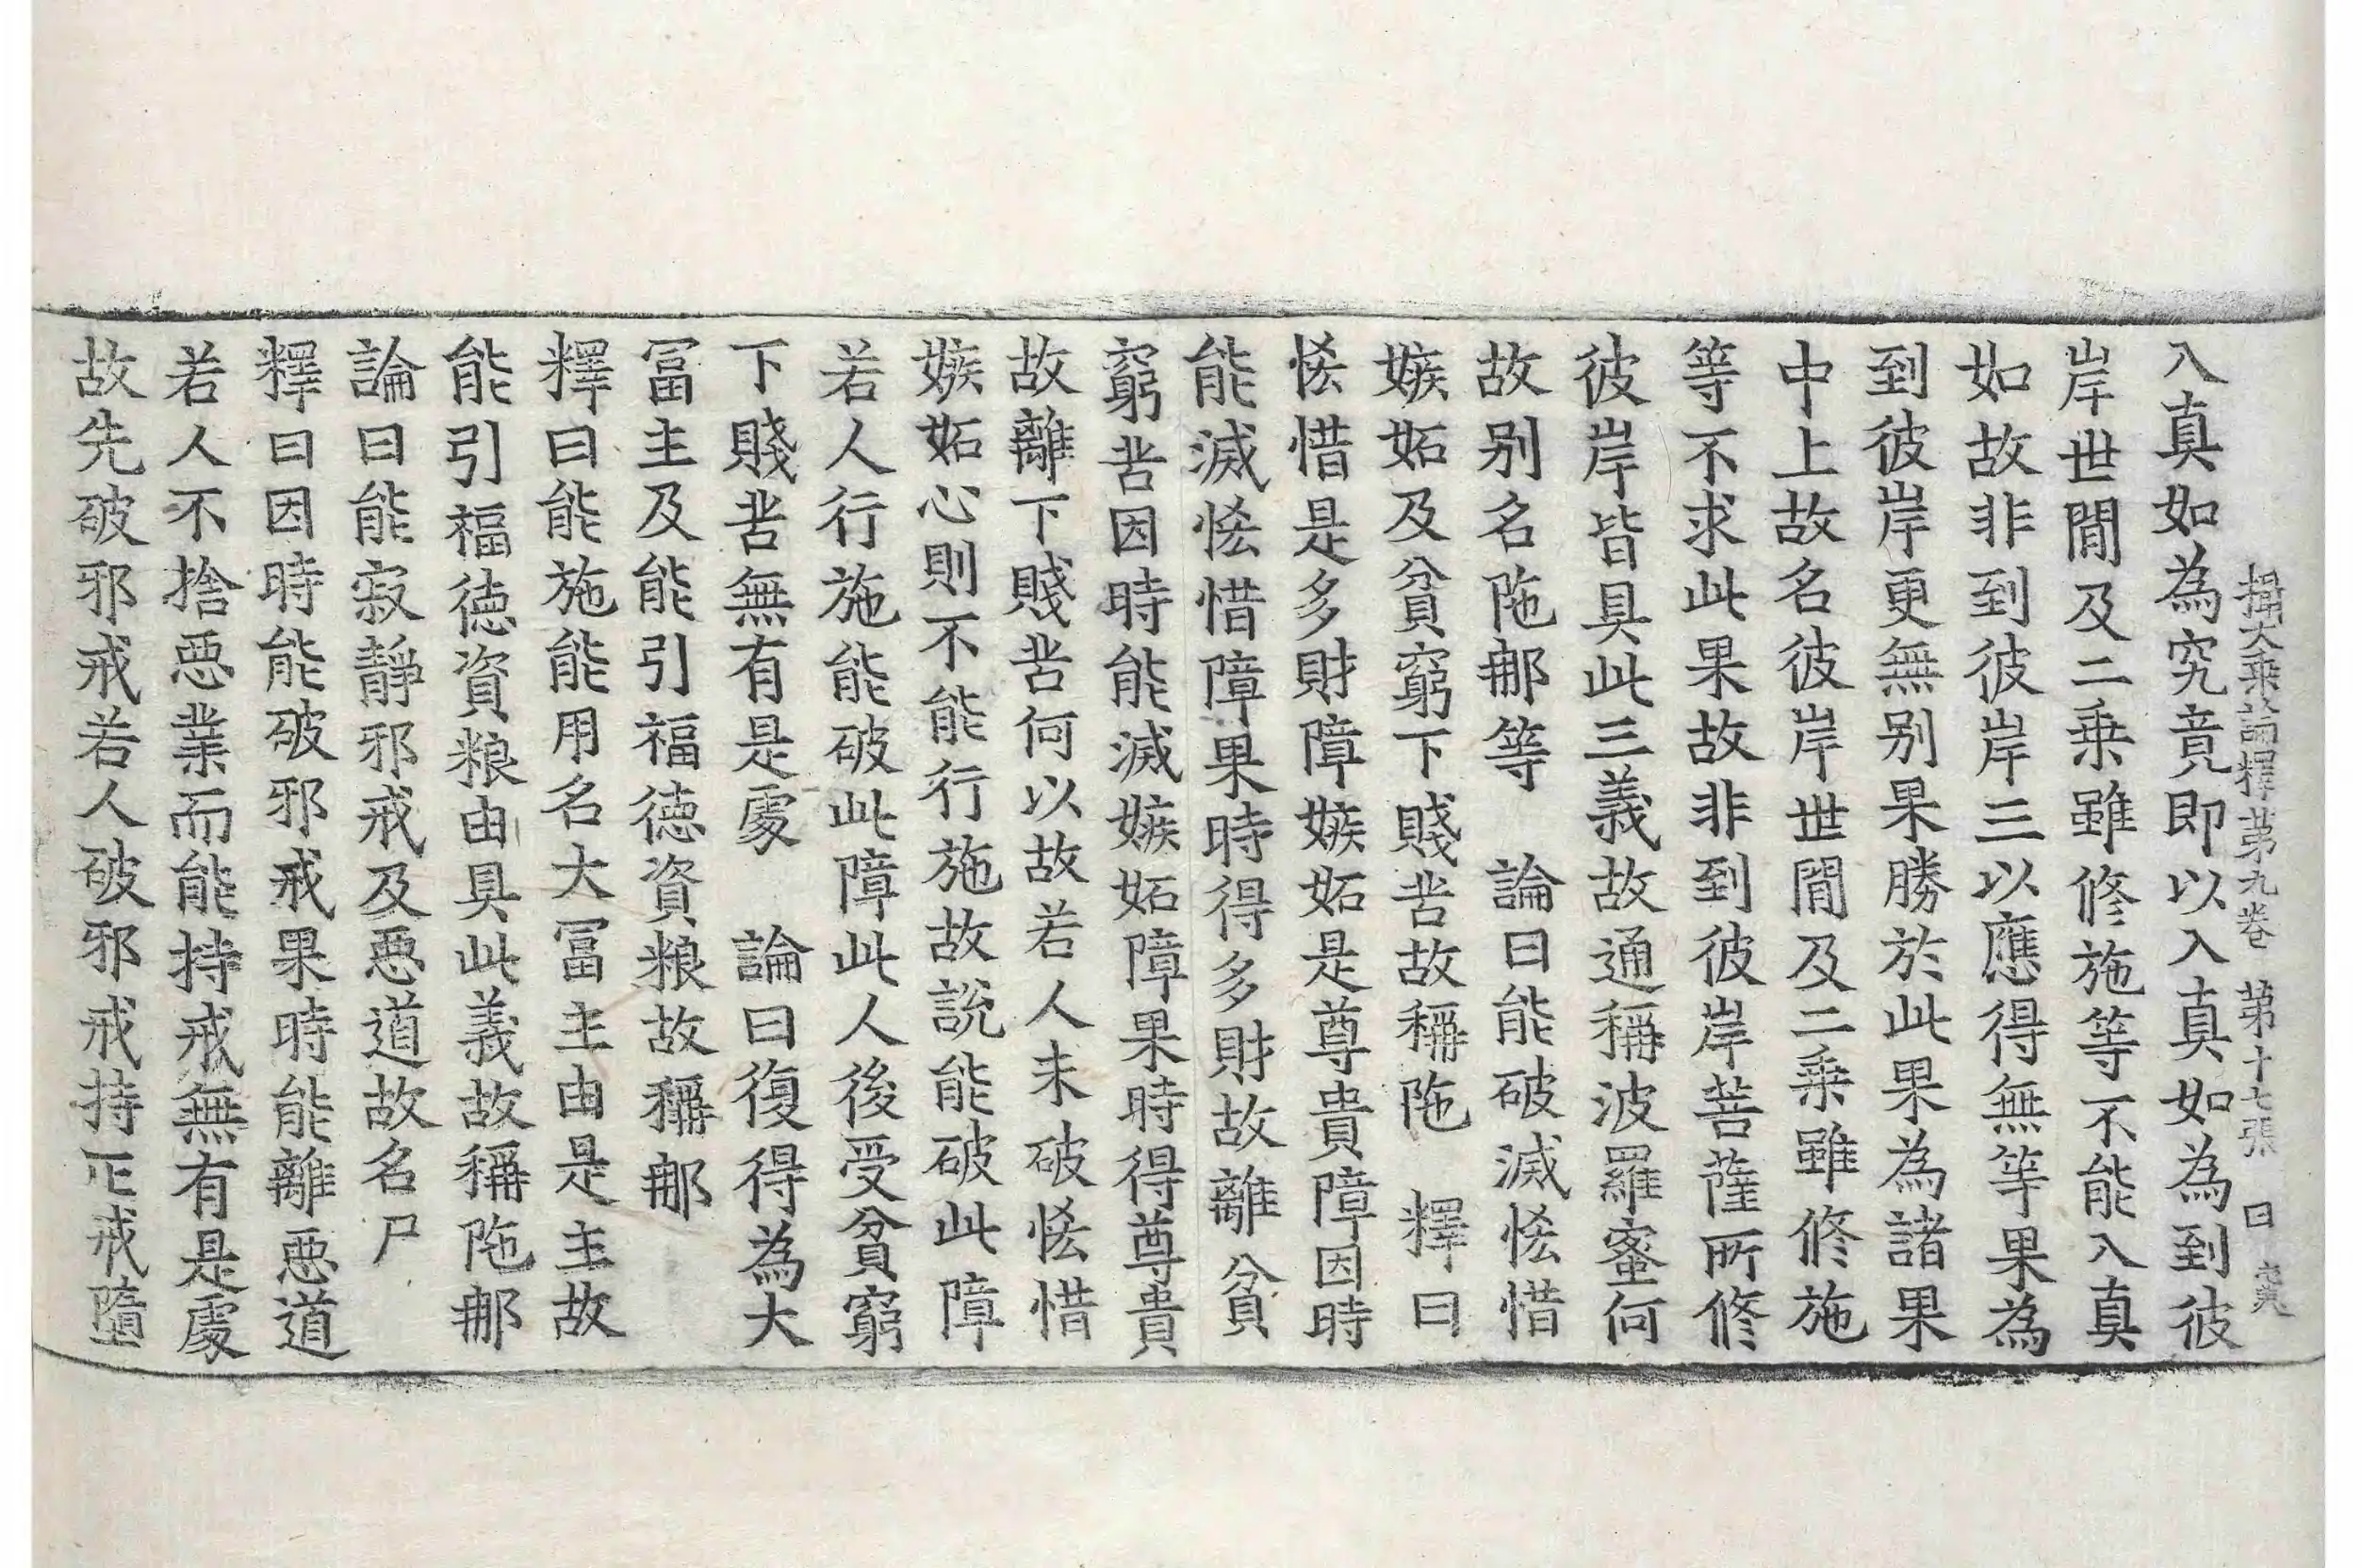 攝大乘論釋第九卷 第十七張 曰
入真如為究竟即以入真如為到彼
岸世間及二乗雖修施等不能入真
如故非到彼岸三以應得無等果為
到彼岸更無别果勝於此果為諸果
中上故名彼岸世間及二乗雖修施
等不求此果故非到彼岸菩薩所修
彼岸皆具此三義故通稱波羅蜜何
故别名陁那等　論曰能破滅恡惜
嫉妬及貧窮下賤苦故稱陁　釋曰
恡惜是多財障嫉妬是尊貴障因時
能滅恡惜障果時得多財故離貧
窮苦因時能滅嫉妬障果時得尊貴
故離下賤苦何以故若人未破恡惜
嫉妬心則不能行施故說能破此障
若人行施能破此障此人後受貧窮
下賤苦無有是處　論曰復得為大
冨主及能引福徳資粮故稱那
釋曰能施能用名大冨主由是主故
能引福徳資粮由具此義故稱陁那
論曰能寂靜邪戒及惡道故名尸
釋曰因時能破邪戒果時能離惡道
若人不捨惡業而能持戒無有是處
故先破邪戒若人破邪戒持正戒墮